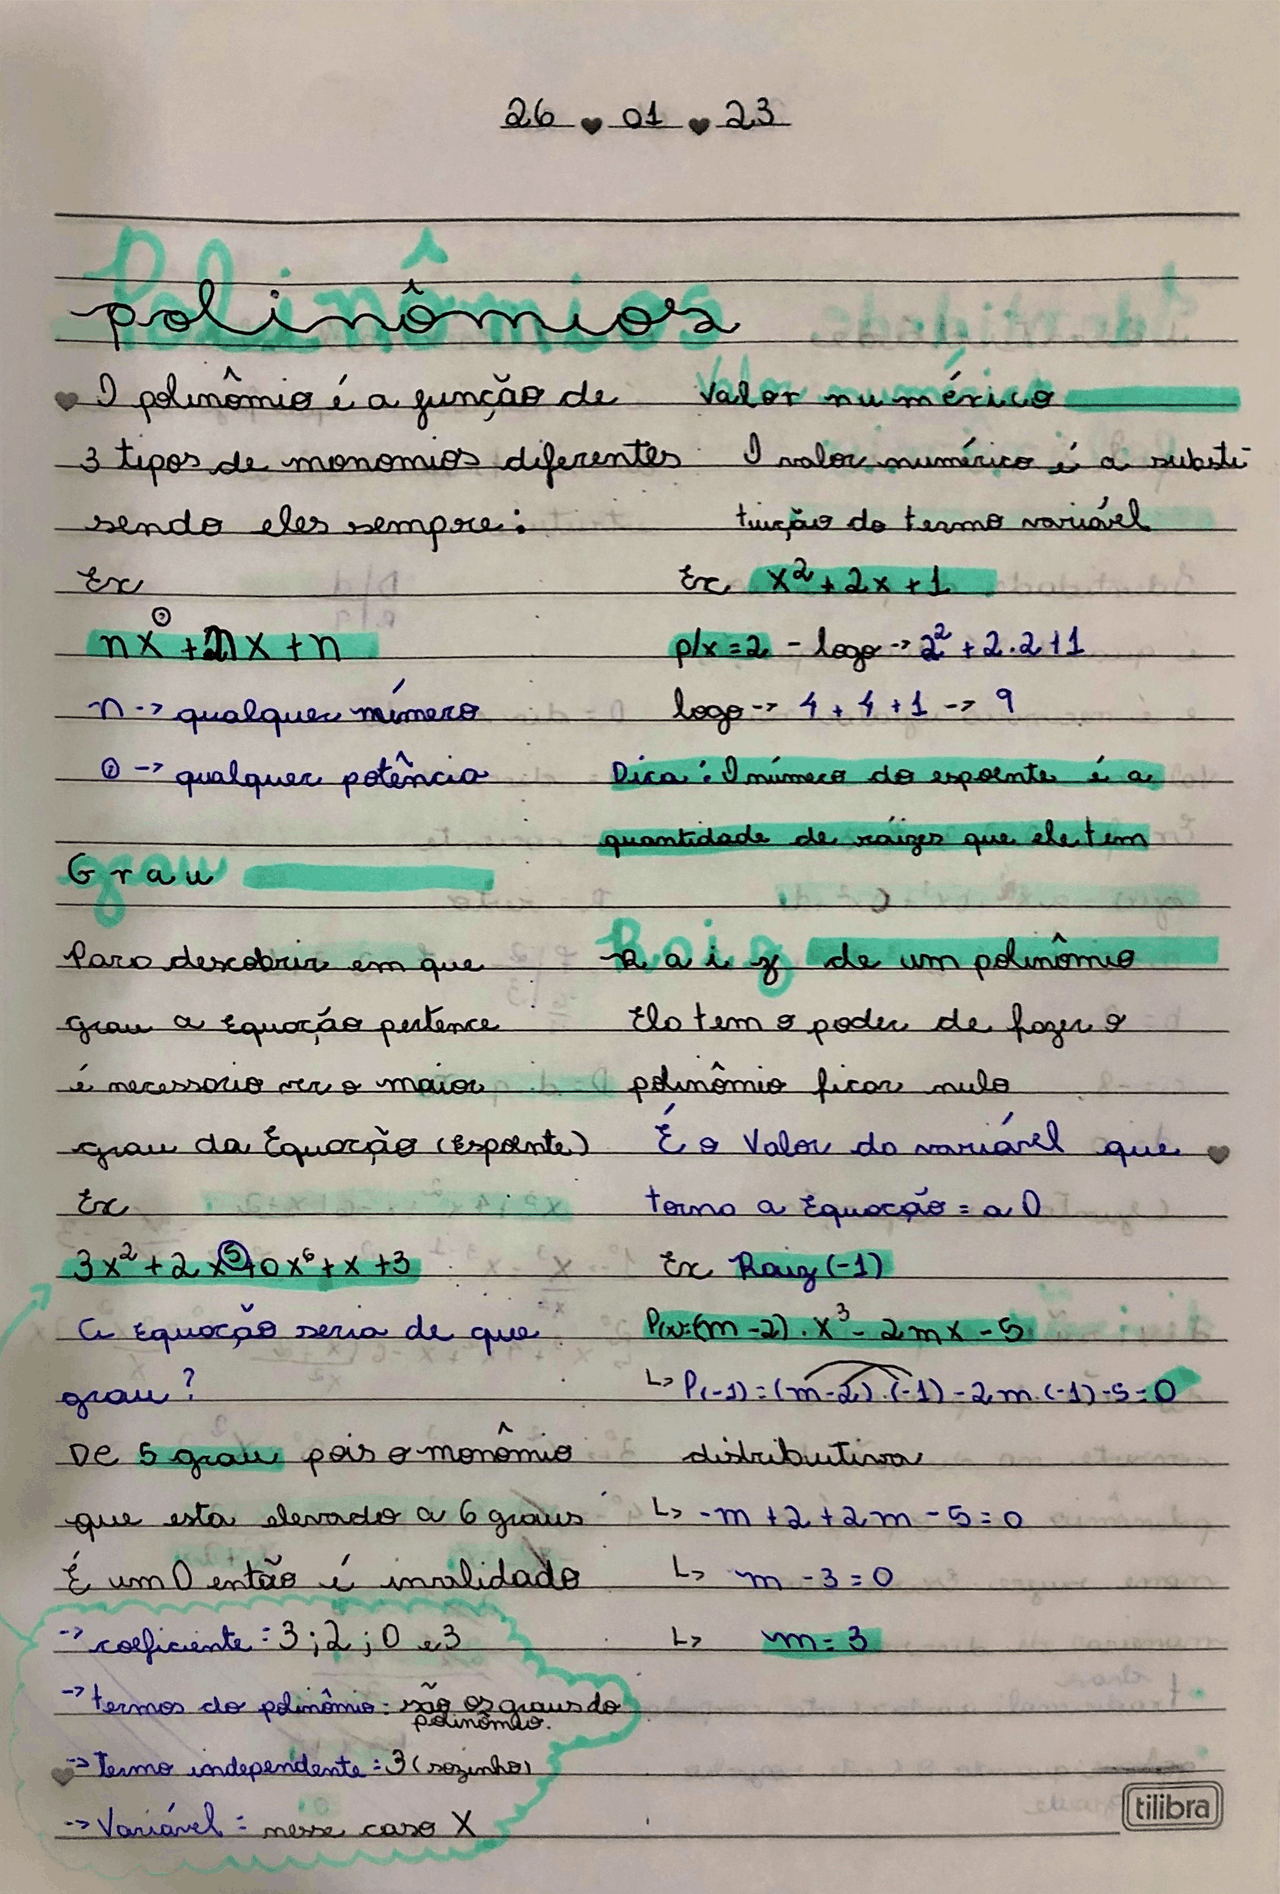 26 ♥ 01 ♥ 23
Polinômios
polinômios
O polinômio é a função de
3 tipos de monomios diferentes
sendo eles sempre:
Ex
nx^? + nx + n
n -> qualquer número
? -> qualquer potência
Grau
Para descobrir em que
grau a Equação pertence
é necessario ver o maior
grau da Equação (Espoente)
Ex
3x² + 2x⁵ + 0x⁶ + x + 3
A Equação seria de que
grau?
De 5 grau pois o monômio
que esta elevado a 6 graus
É um 0 então é invalidado
-> coeficiente = 3; 2; 0 e 3
-> termos do polinômio: são os graus do
polinômio.
-> Termo independente = 3 (sozinho)
-> Variável = nesse caso X
Valor numérico
O valor numérico é a substi
tuição do termo variável
Ex x² + 2x + 1
p/x = 2 - logo -> 2² + 2.2 + 1
logo -> 4 + 4 + 1 -> 9
Dica: O número do espoente é a
quantidade de raízes que ele tem
Raiz de um polinômio
Ela tem o poder de fazer o
polinômio ficar nulo
É o Valor da variável que
torna a Equação = a 0
Ex Raiz (-1)
P(x)=(m-2).x³ - 2mx - 5
↳ P(-1) = (m-2).(-1) - 2m.(-1) - 5 = 0
distributiva
↳ -m + 2 + 2m - 5 = 0
↳ m - 3 = 0
↳ m = 3
tilibra